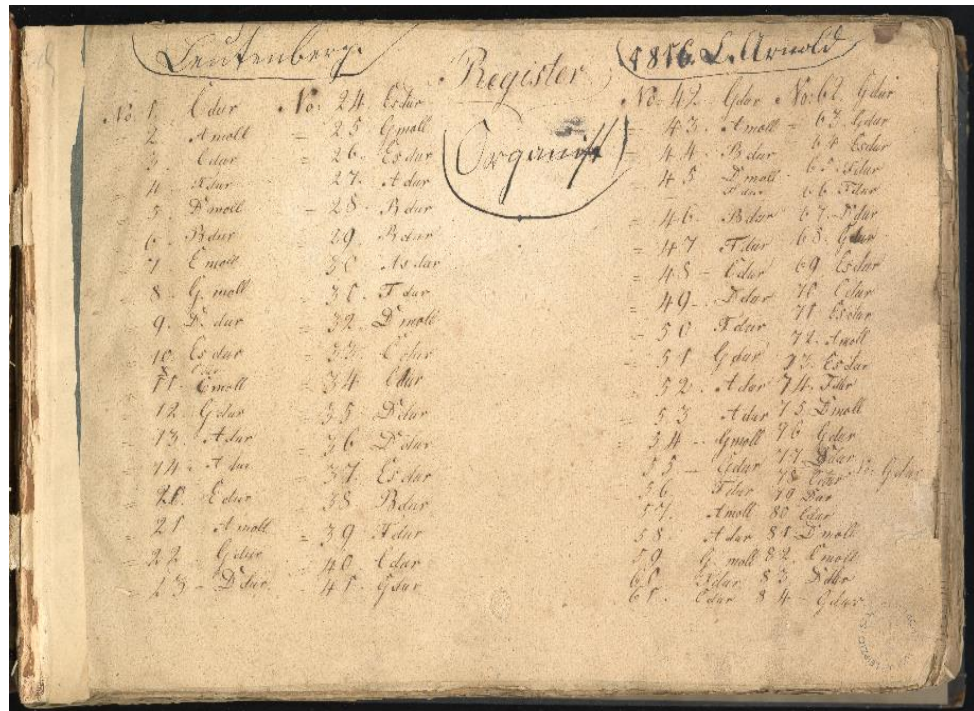 Leutenberg.
Register
1816. L. Arnold
Organist
No. 1. Cdur
= 2. Amoll
= 3. Cdur
= 4. Fdur
= 5. Dmoll
= 6. Bdur
= 7. Emoll
= 8. G. moll
= 9. D. dur
= 10. Esdur
= 11. Cmoll
= 12. Gdur
= 13. Adur
= 14. Adur
= 20. Edur
= 21. Amoll
= 22. Gdur
= 23 - Ddur
No: 24. Esdur
= 25 Gmoll
= 26. Esdur
27. Adur
= 28. Bdur
29. Bdur
30. Asdur
= 31. Fdur
= 32. Dmoll
= 33. Cdur
= 34. Cdur
= 35 Ddur
= 36 Ddur
= 37. Esdur
= 38 Bdur
= 39 Adur
= 40. Cdur
= 41. Gdur
No: 42. Gdur
= 43. Amoll
= 44. Bdur
= 45 Dmoll
= 46. Bdur
= 47 Fdur
= 48 - Cdur
= 49 - Ddur
= 50 Fdur
= 51 Gdur
= 52. Adur
= 53 Adur
= 54 - Gmoll
= 55 - Gdur
= 56. Fdur
57. Amoll
58. Adur
59. G. moll
60. Fdur
61. Cdur
No: 62. Gdur
= 63. Gdur
64 Esdur
65. Fdur
66 Fdur
67. Ddur
68. Gdur
69 Esdur
70 Cdur
71 Esdur
72. Amoll
73. Esdur
74. Fdur
75. Dmoll
76 Gdur
77 Ddur
78 Cdur
79 Dur
80 Cdur
81 Dmoll
82. Cmoll
83 Ddur
84 - Gdur
Gdur